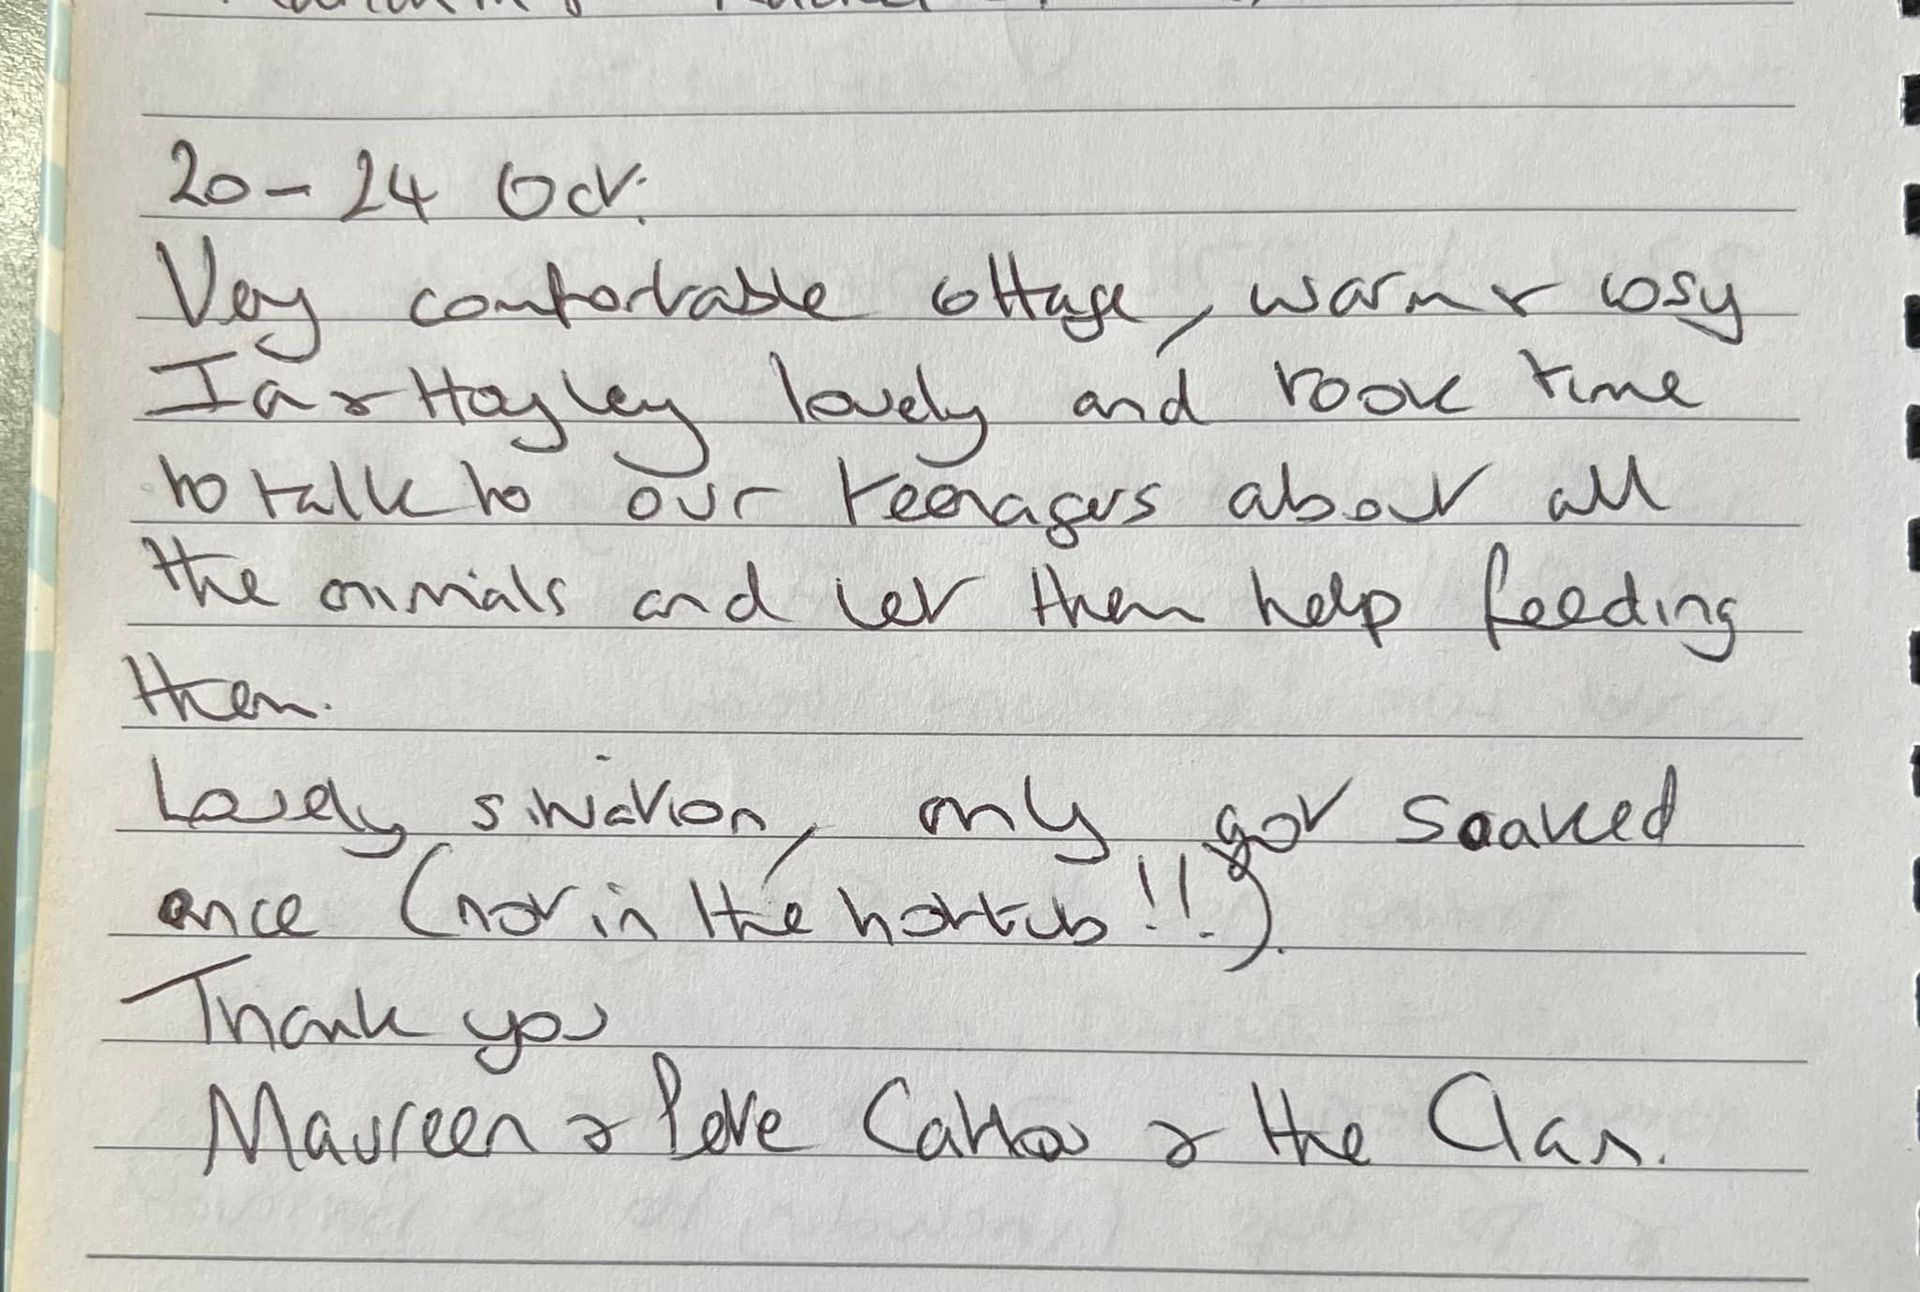 20-24 Oct.
Very comfortable cottage, warm & cosy
Ia & Hayley lovely and took time
to talk to our teenagers about all
the animals and let them help feeding
them.
Lovely situation, only got soaked
once (not in the hottub!!).
Thank you
Maureen & Pete & the Clan.